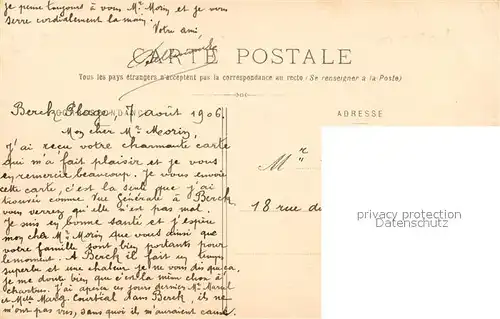 je pense toujours à vous Mr Morin et je vous
serre cordialement la main.
Votre ami,
CARTE POSTALE
Tous les pays étrangers n'acceptent pas la correspondance au recto (Se renseigner à la Poste)
CORRESPONDANCE
ADRESSE
Berck Plage 7 août 1906.
Mon cher Mr Morin,
J'ai reçu votre charmante carte
qui m'a fait plaisir et je vous
en remercie beaucoup. Je vous envoie
cette carte, c'est la seule que j'ai
trouvée comme Vue Générale à Berck
vous verrez qu'elle n'est pas mal.
Je suis en bonne santé et j'espère
mon cher Mr Morin que vous ainsi que
votre famille sont bien portants pour
le moment. A Berck il fait un temps
superbe et une chaleur je ne vous dis que ça.
je me doute bien que c'est la même chose à
chartres. J'ai aperçu ces jours derniers Mr Marcel
et Melle Marg Courtéal dans Berck, ils ne
m'ont pas vus, sans quoi ils m'auraient causé.
Mr
18 rue de
property protection
Datenschutz